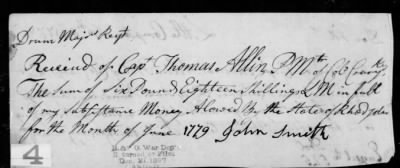 Drum Majr Rect
Receivd of Capt Thomas Allin P Mr of Colo Crary's Rt
The Sum of Six Pound Eighteen Shillings LM in full
of my Subsistance Money Alowed by the State of Rhod
for the Month of June 1779 John Smith
4
War Dep't